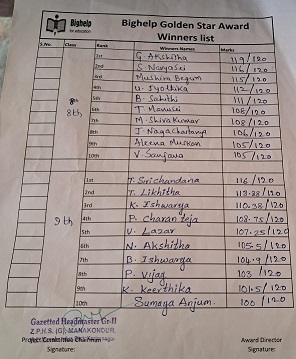 Bighelp
for education
Bighelp Golden Star Award
Winners list
S.No. Class Rank Winners Names Marks
1st G Akshitha 119/120
2nd S Navya Sri 116/120
3rd Mushira Begum 115/120
4th U. Jyothika 112/120
8th 5th B. Sahithi 111/120
8th 6th T. Manusri 108/120
7th M. Shiva Kumar 108/120
8th J. Nagachaitanya 106/120
9th Aleena Muskan 105/120
10th V. Sanjana 105/120
1st T. Srichandana 116/120
2nd T. Likhitha 113.28/120
3rd K. Ishwarya 110.38/120
9th 4th P. Charan teja 108.75/120
5th V. Lazar 107.25/120
6th N. Akshitha 105.5/120
7th B. Ishwarya 104.9/120
8th P. Vijay 103/120
9th K. Keerthika 101.5/120
10th Sumaya Anjum. 100/120
Gazetted Headmaster Gr-II
Z.P.H.S. (G) MANAKONDUR,
Award Director
Signature: Signature: